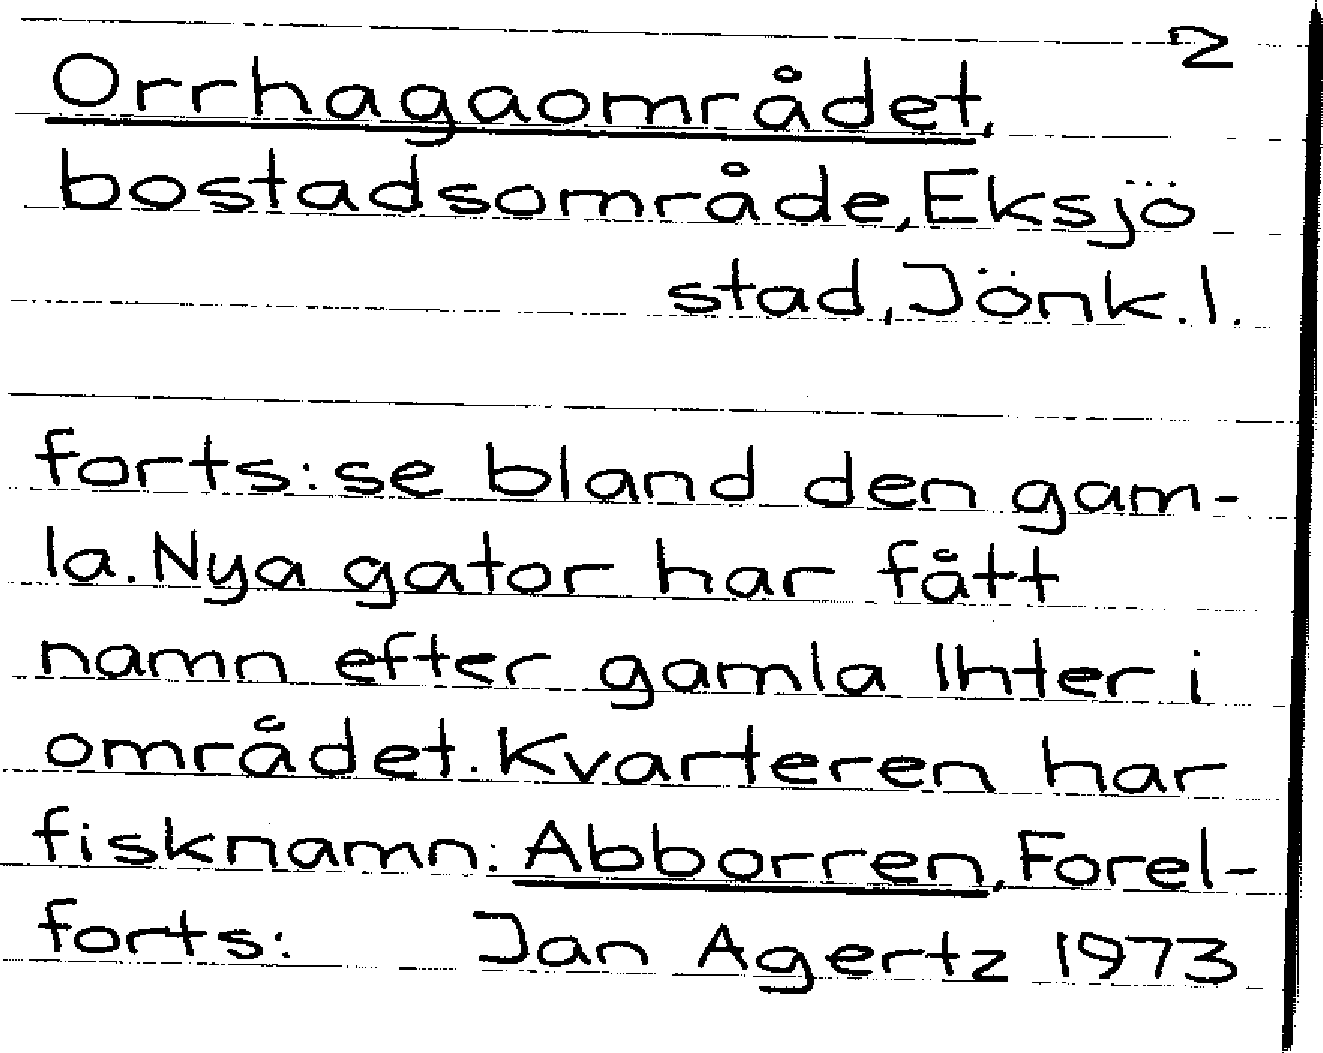 2
Orrhagaområdet,
bostadsområde, Eksjö
stad, Jönk. l.
forts: se bland den gam-
la. Nya gator har fått
namn efter gamla i
området. Kvarteren har
fisknamn: Abborren, Forel-
forts: Jan Agertz 1973